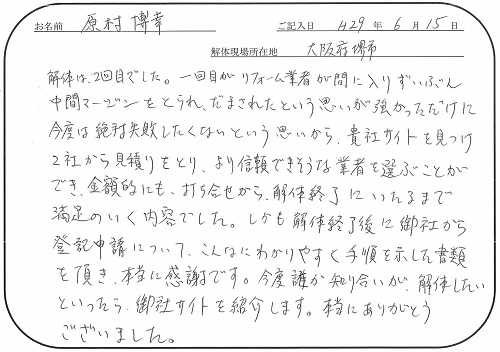 お名前 原村 博幸 ご記入日 H29 年 6 月 15 日
解体現場所在地 大阪府堺市
解体は、2回目でした。一回目がリフォーム業者が間に入りずいぶん
中間マージンをとられ、だまされたという思いが強かっただけに
今度は絶対失敗したくないという思いから、貴社サイトを見つけ
2社から見積りをとり、より信頼できそうな業者を選ぶことが
でき、金額的にも、打ち合せから、解体終了にいたるまで
満足のいく内容でした。しかも解体終了後に御社から
登記申請について、こんなにわかりやすく手順を示した書類
を頂き、本当に感謝です。今度誰か知り合いが、解体したい
といったら、御社サイトを紹介します。本当にありがとう
ございました。